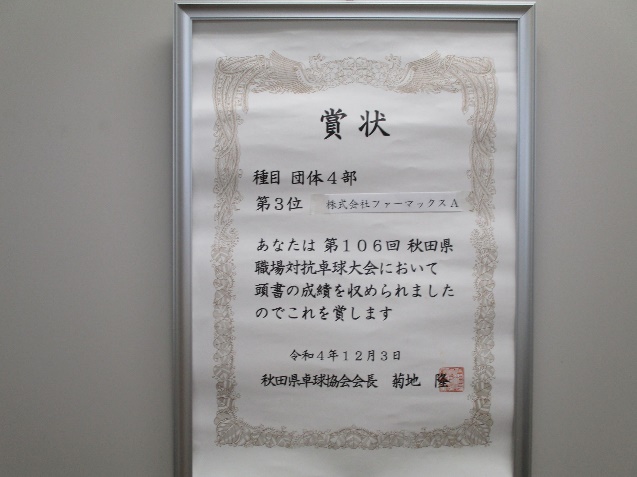 賞状
種目 団体4部
第3位 株式会社ファーマックスA
あなたは 第106回 秋田県
職場対抗卓球大会において
頭書の成績を収められました
のでこれを賞します
令和4年12月3日
秋田県卓球協会会長 菊地 隆